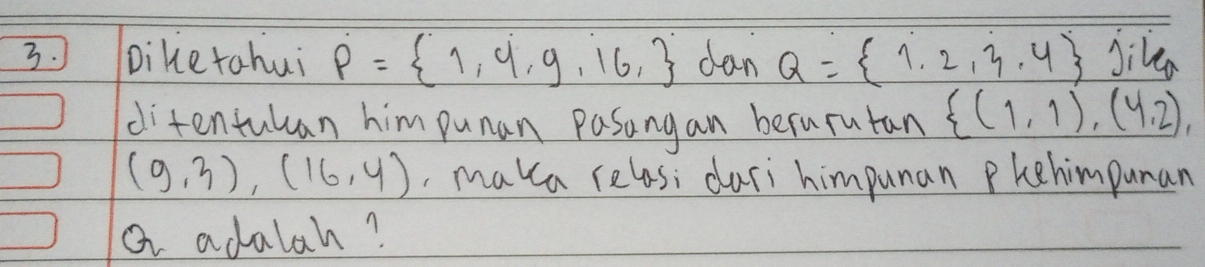 3. Diketahui P = { 1, 4, 9, 16, } dan Q = { 1. 2, 3. 4 } Jika
ditentukan himpunan pasangan berurutan {(1, 1), (4,2),
(9,3), (16,4), maka relasi dari himpunan P kehimpunan
Q adalah ?